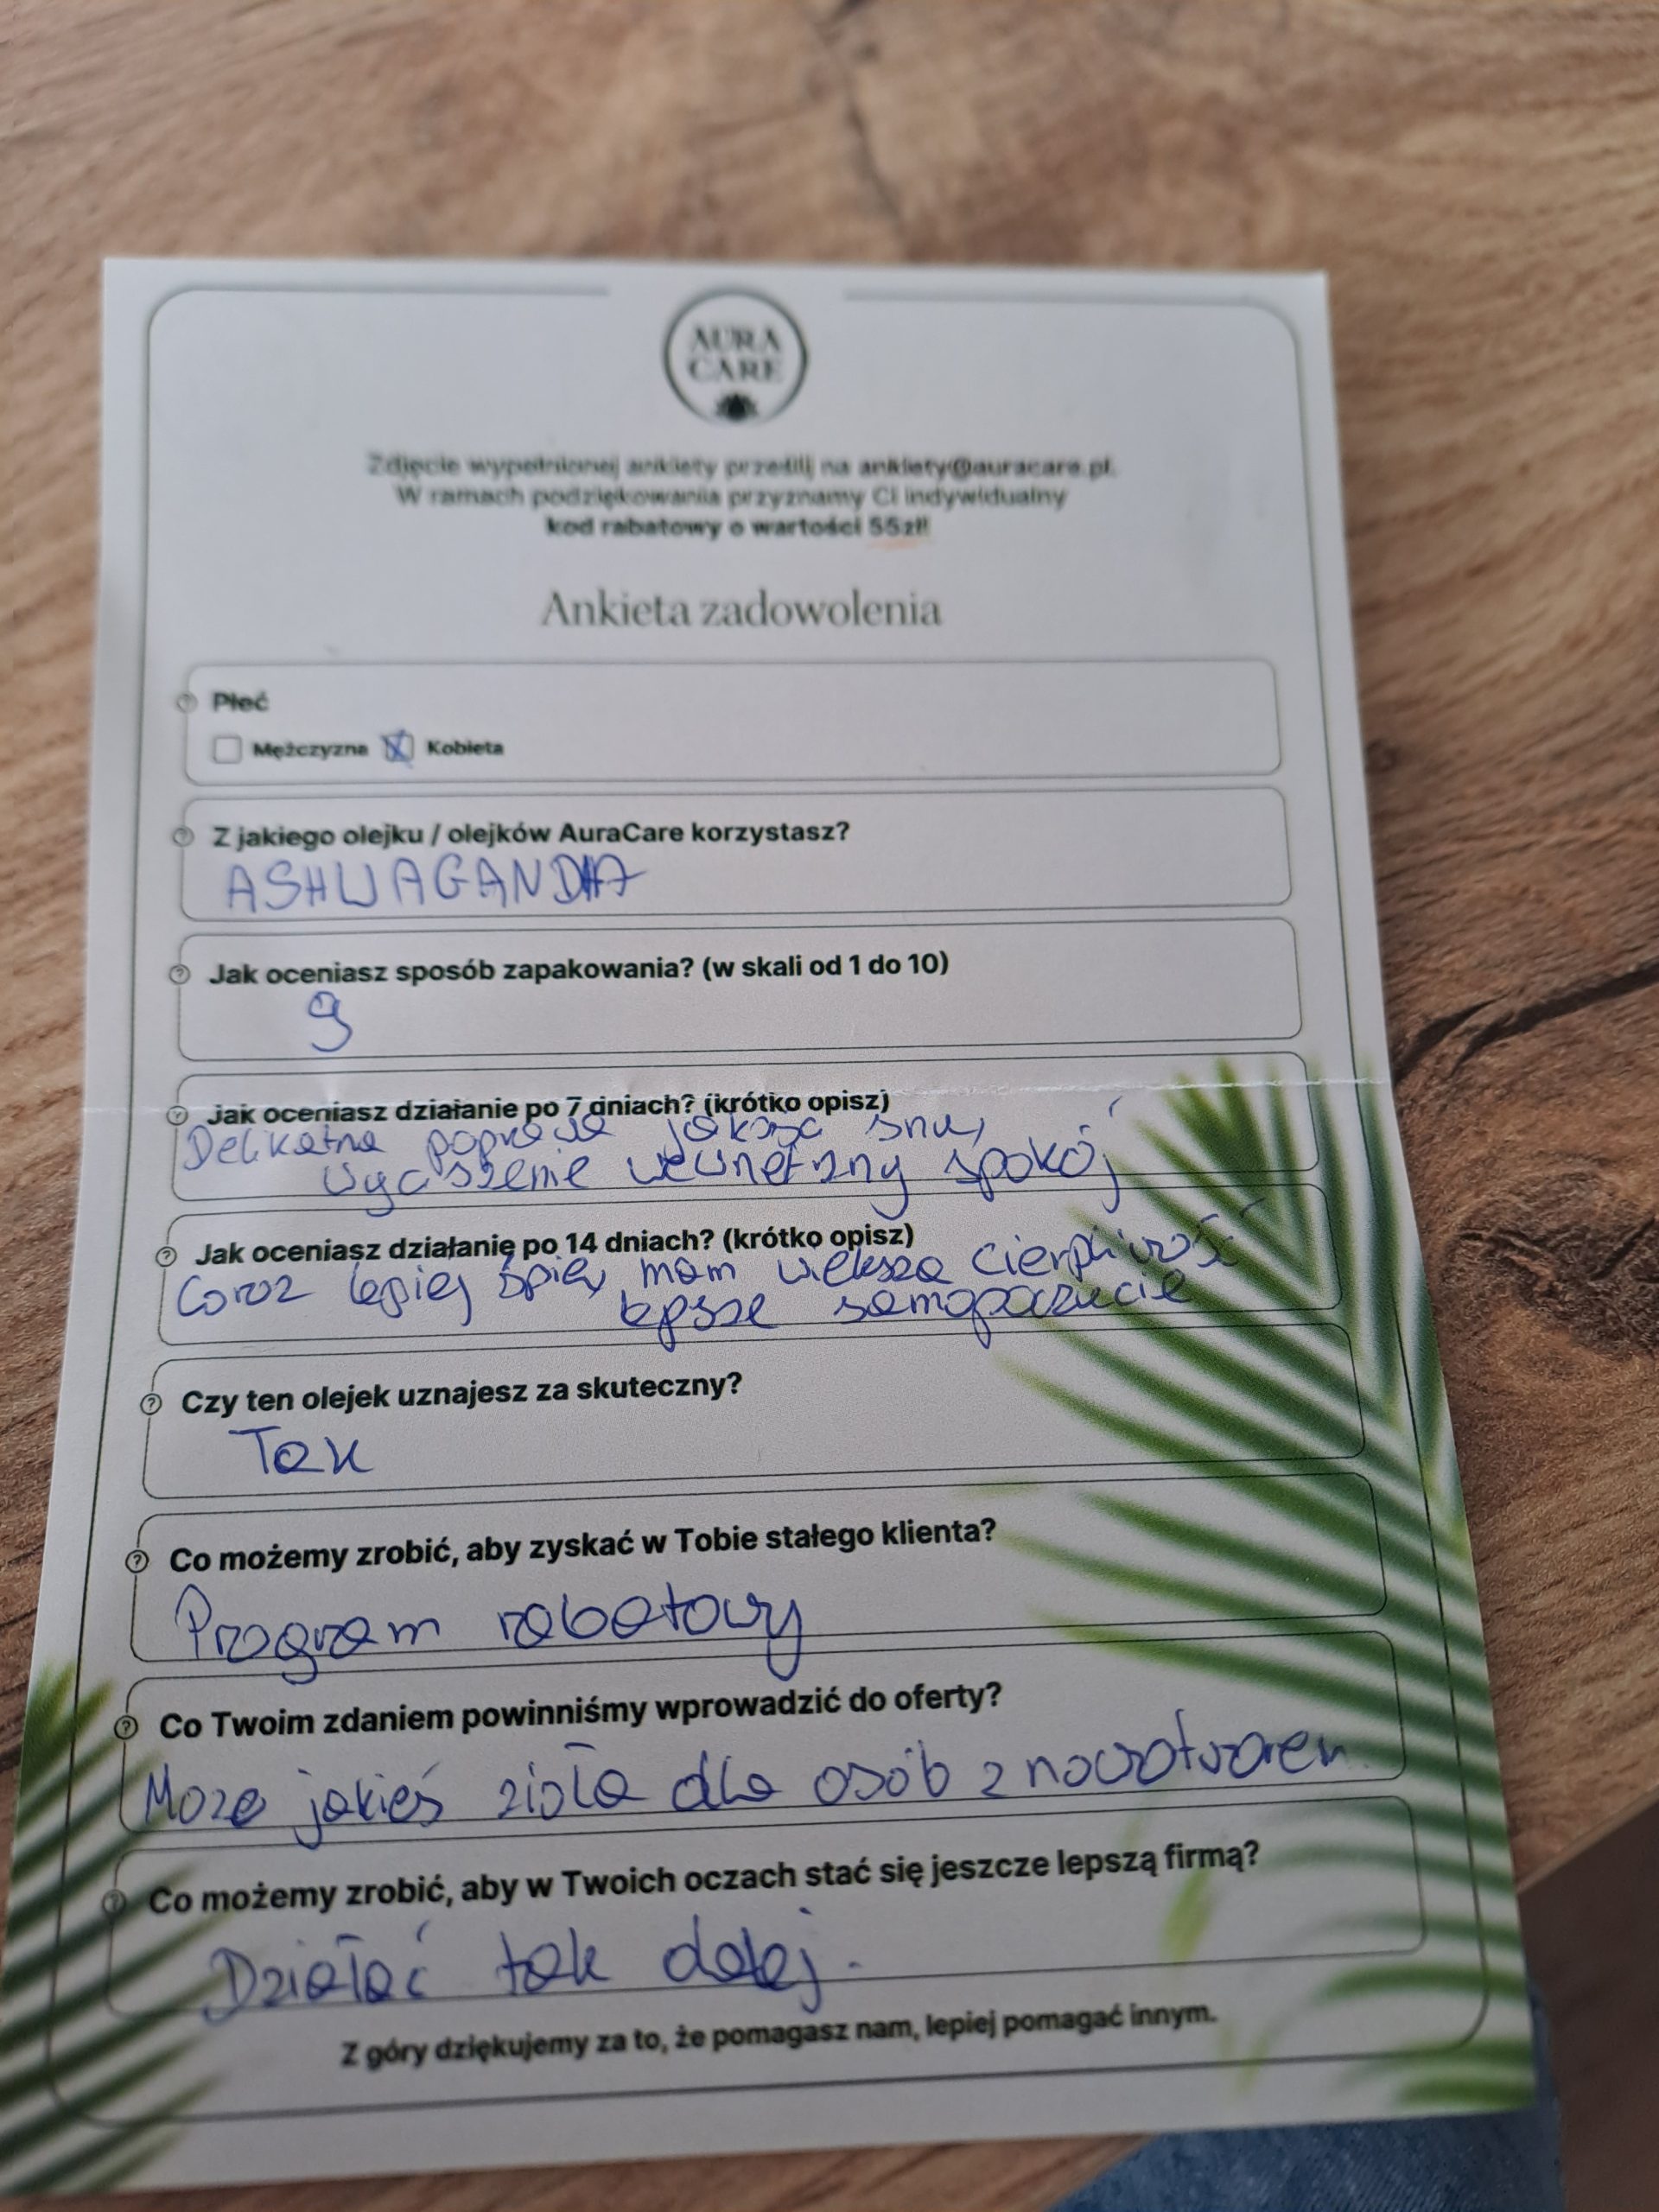 AURA
CARE
Zdjęcie wypełnionej ankiety prześlij na ankiety@auracare.pl.
W ramach podziękowania przyznamy Ci indywidualny
kod rabatowy o wartości 55zł!
Ankieta zadowolenia
Płeć
Mężczyzna Kobieta
Z jakiego olejku / olejków AuraCare korzystasz?
ASHWAGANDHA
Jak oceniasz sposób zapakowania? (w skali od 1 do 10)
9
Jak oceniasz działanie po 7 dniach? (krótko opisz)
Delikatna poprawa jakość snu,
wyciszenie wewnętrzny spokój
Jak oceniasz działanie po 14 dniach? (krótko opisz)
Coraz lepiej śpię, mam większa cierpliwość
lepsze samopoczucie
Czy ten olejek uznajesz za skuteczny?
Tak
Co możemy zrobić, aby zyskać w Tobie stałego klienta?
Program rabatowy
Co Twoim zdaniem powinniśmy wprowadzić do oferty?
Może jakieś zioła dla osób z nowotworem
Co możemy zrobić, aby w Twoich oczach stać się jeszcze lepszą firmą?
Działać tak dalej.
Z góry dziękujemy za to, że pomagasz nam, lepiej pomagać innym.